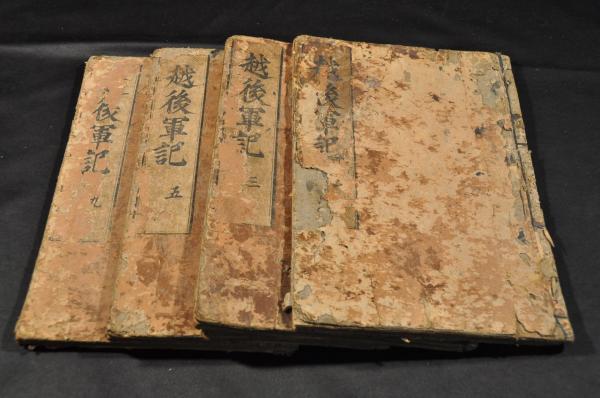 越後軍記
越後軍記 三
越後軍記 五
後軍記 九